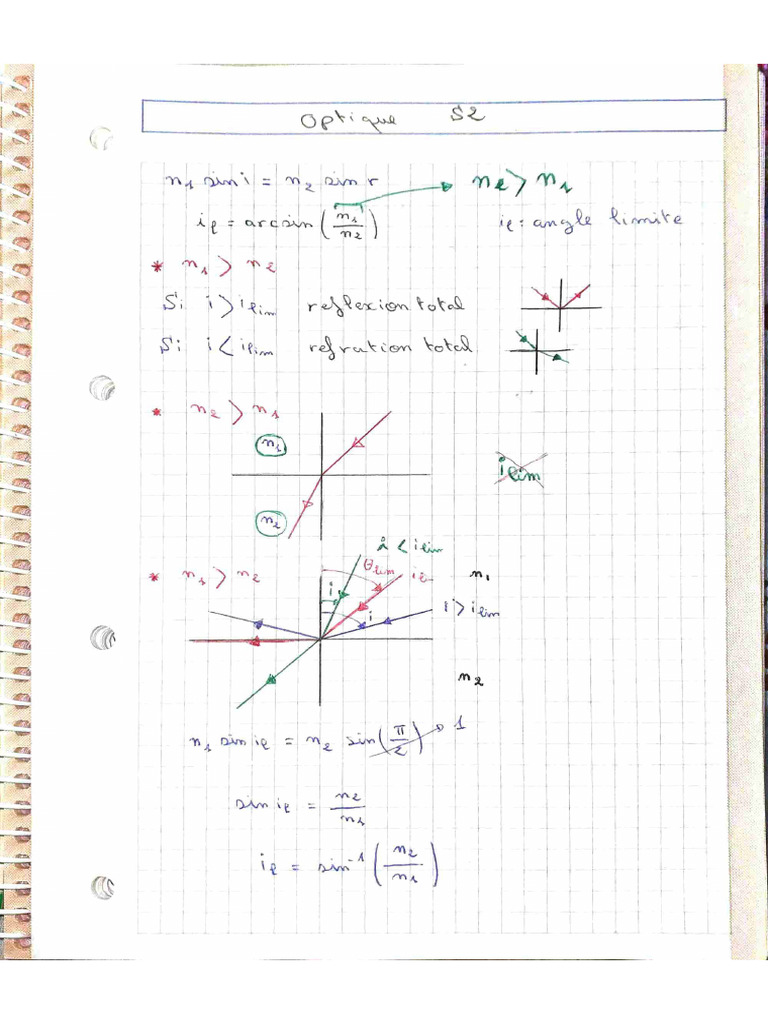 Optique S2
n₁ sin i = n₂ sin r → n₂ > n₁
iℓ = arcsin (n₁/n₂) iℓ : angle limite
* n₁ > n₂
Si i > iℓim reflexion total
Si i < iℓim refration total
* n₂ > n₁
n₁
iℓim
n₂
i < iℓim
* n₁ > n₂ θℓim iℓ n₁
i i i > iℓim
n₂
n₁ sin iℓ = n₂ sin(π/2) → 1
sin iℓ = n₂/n₁
iℓ = sin⁻¹ (n₂/n₁)